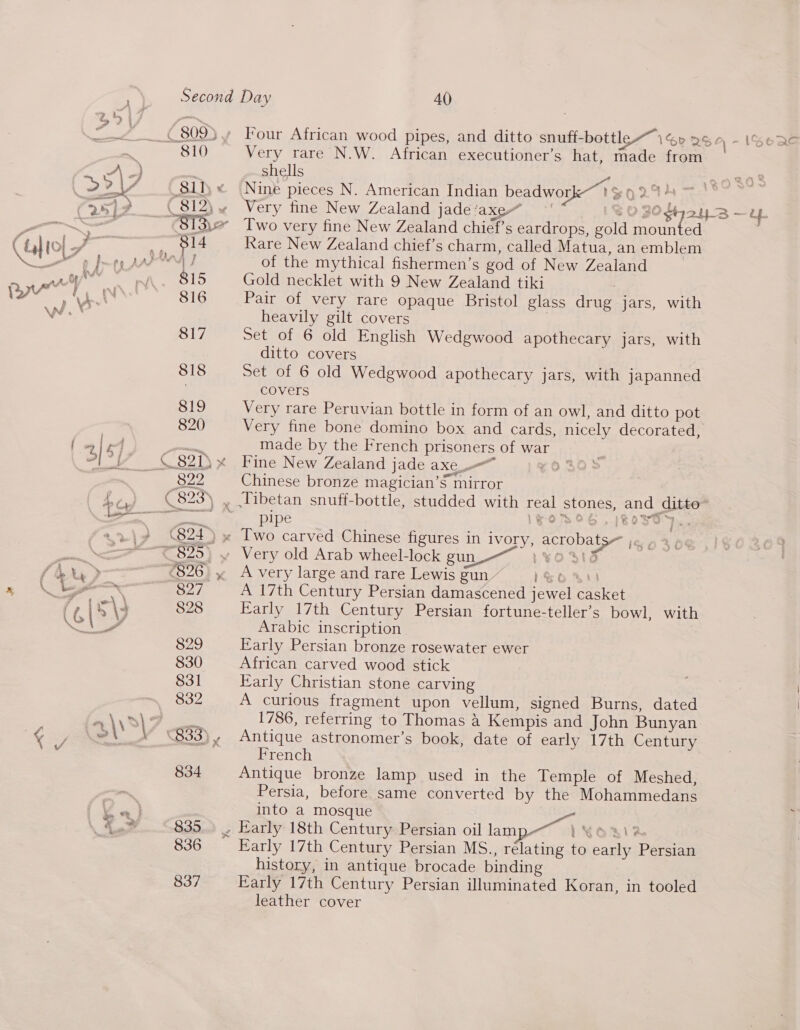 Second Day 40
809 Four African wood pipes, and ditto snuff-bottle
810 Very rare N.W. African executioner's hat, made from
shells
811 Nine pieces N. American Indian beadwork
812 Very fine New Zealand jade axe
813 Two very fine New Zealand chief's eardrops, gold mounted
814 Rare New Zealand chief's charm, called Matua, an emblem
of the mythical fishermen's god of New Zealand
815 Gold necklet with 9 New Zealand tiki
816 Pair of very rare opaque Bristol glass drug jars, with
heavily gilt covers
817 Set of 6 old English Wedgwood apothecary jars, with
ditto covers
818 Set of 6 old Wedgwood apothecary jars, with japanned
covers
819 Very rare Peruvian bottle in form of an owl, and ditto pot
820 Very fine bone domino box and cards, nicely decorated,
made by the French prisoners of war
821 Fine New Zealand jade axe
822 Chinese bronze magician's mirror
823 Tibetan snuff-bottle, studded with real stones, and ditto
pipe
824 Two carved Chinese figures in ivory, acrobats
825 Very old Arab wheel-lock gun
826 A very large and rare Lewis gun
827 A 17th Century Persian damascened jewel casket
828 Early 17th Century Persian fortune-teller's bowl, with
Arabic inscription
829 Early Persian bronze rosewater ewer
830 African carved wood stick
831 Early Christian stone carving
832 A curious fragment upon vellum, signed Burns, dated
1786, referring to Thomas à Kempis and John Bunyan
833 Antique astronomer's book, date of early 17th Century
French
834 Antique bronze lamp used in the Temple of Meshed,
Persia, before same converted by the Mohammedans
into a mosque
835 Early 18th Century Persian oil lamp
836 Early 17th Century Persian MS., relating to early Persian
history, in antique brocade binding
837 Early 17th Century Persian illuminated Koran, in tooled
leather cover